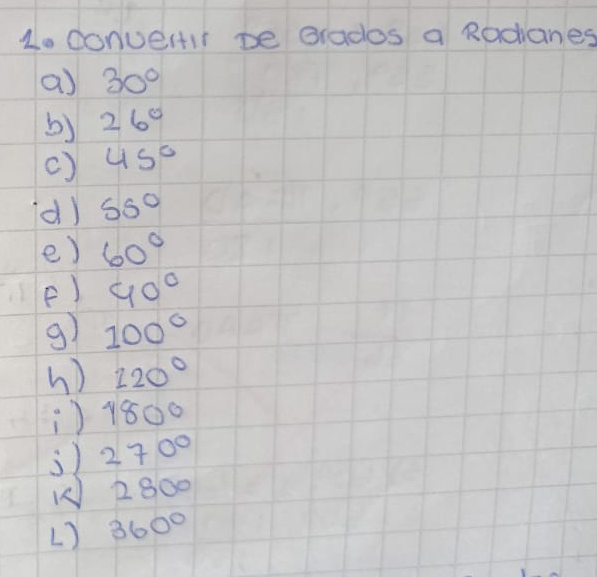 1. Convertir De Grados a Radianes
a) 30°
b) 26°
c) 45°
d) 55°
e) 60°
F) 90°
g) 100°
h) 120°
i) 180°
j) 270°
K) 280°
L) 360°